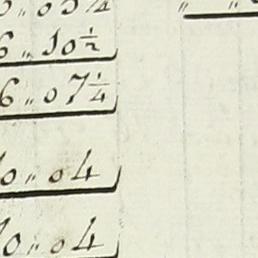 6 „ 10 ½
6 „ 07 ¼
0 „ 04
0 „ 04